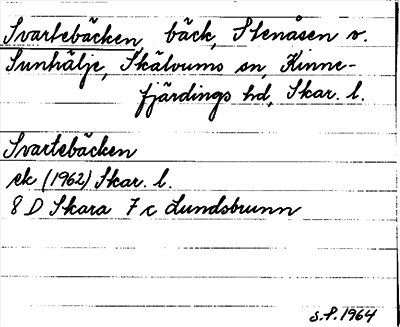 Svartebäcken, bäck, Stenåsen v.
Sunhälje, Skälvums sn, Kinne-
fjärdings hd, Skar. l.
Svartebäcken
ek (1962) Skar. l.
8 D Skara 7 c Lundsbrunn
S.F. 1964